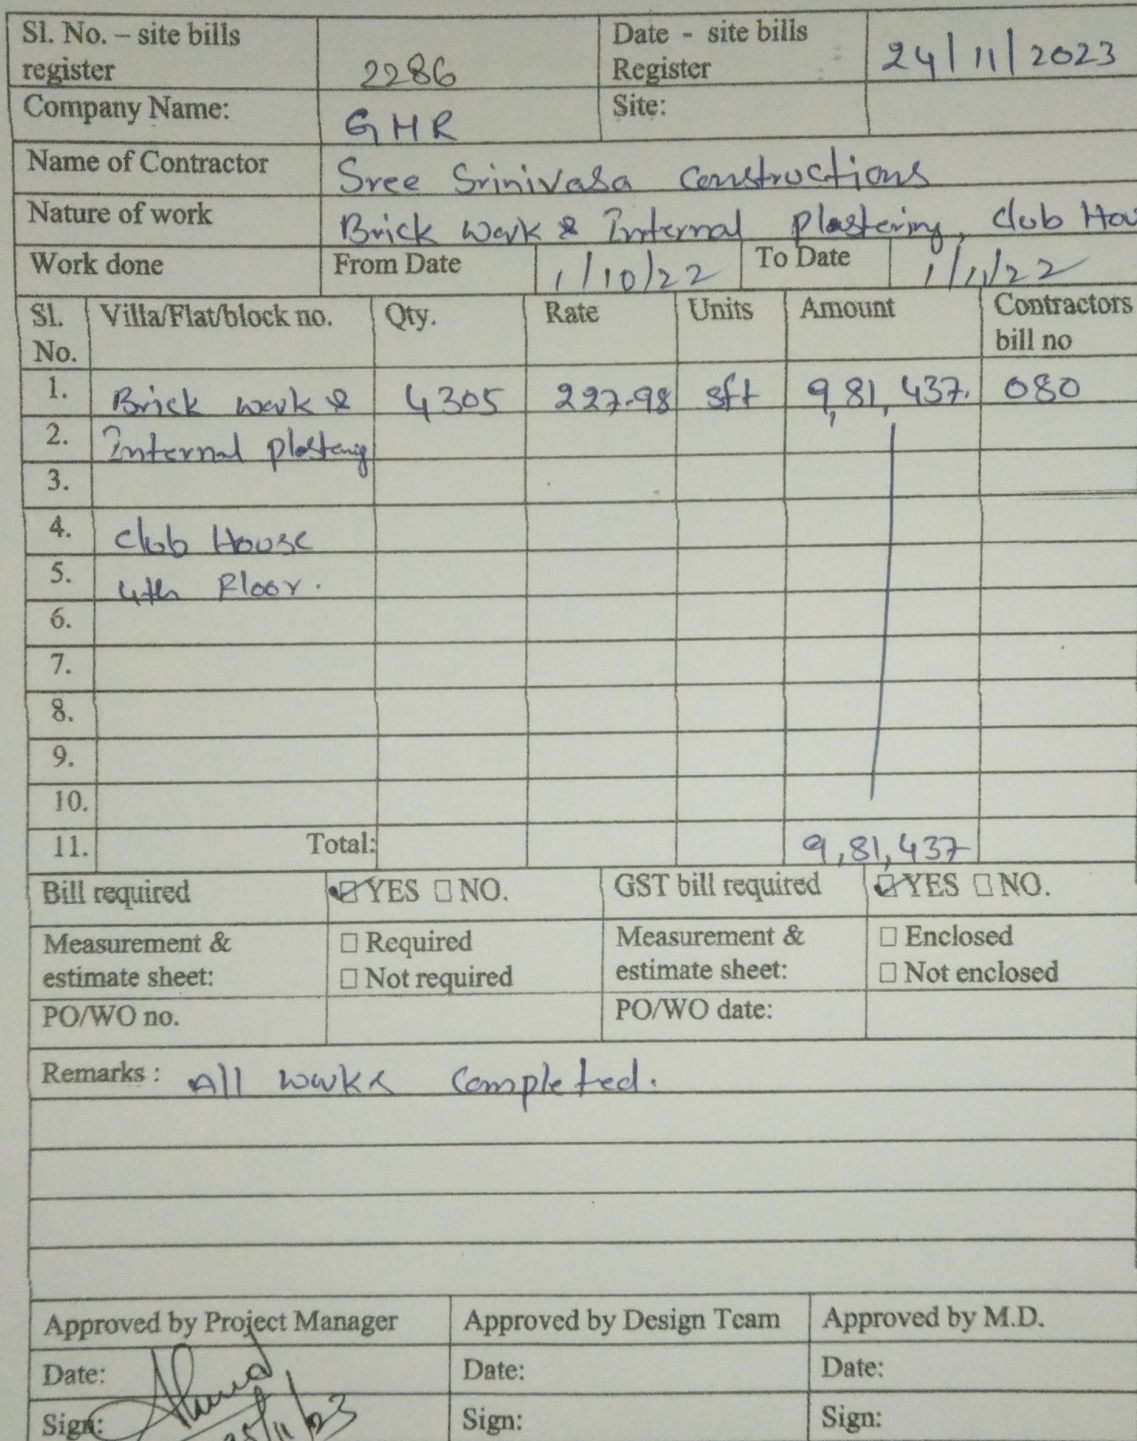 Sl. No. – site bills register 2286 Date - site bills Register 24/11/2023
Company Name: GHR Site:
Name of Contractor Sree Srinivasa Constructions
Nature of work Brick work & Internal plastering, club Hou
Work done From Date 1/10/22 To Date 1/11/22
Sl. No. Villa/Flat/block no. Qty. Rate Units Amount Contractors bill no
1. Brick work & 4305 227.98 sft 9,81,437. 080
2. Internal plasteng
3.
4. Club House
5. 4th Floor.
6.
7.
8.
9.
10.
11. Total: 9,81,437
Bill required ☑ YES ☐ NO. GST bill required ☑ YES ☐ NO.
Measurement & estimate sheet: ☐ Required ☐ Not required Measurement & estimate sheet: ☐ Enclosed ☐ Not enclosed
PO/WO no. PO/WO date:
Remarks : All works Completed.
Approved by Project Manager Approved by Design Team Approved by M.D.
Date: Date: Date:
Sign: 25/11/23 Sign: Sign: